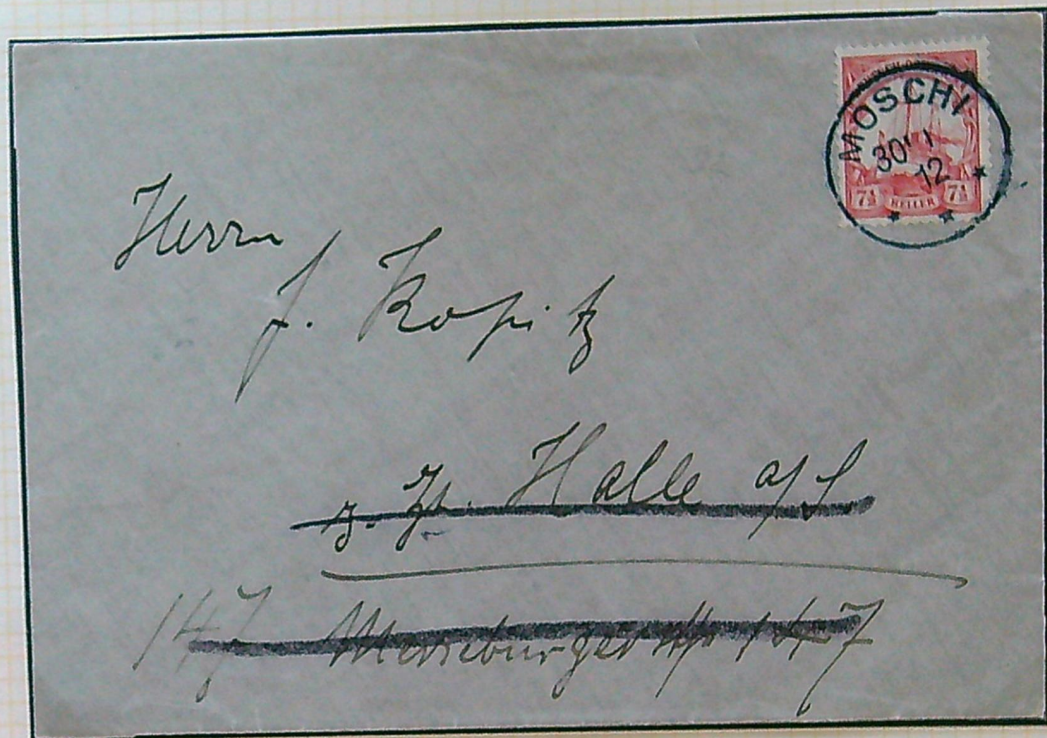 MOSCHI
30
12
7½ HELLER 7½
Herrn
J. Kopitz
z. Zt. Halle a/S.
147 Merseburgerstr 147